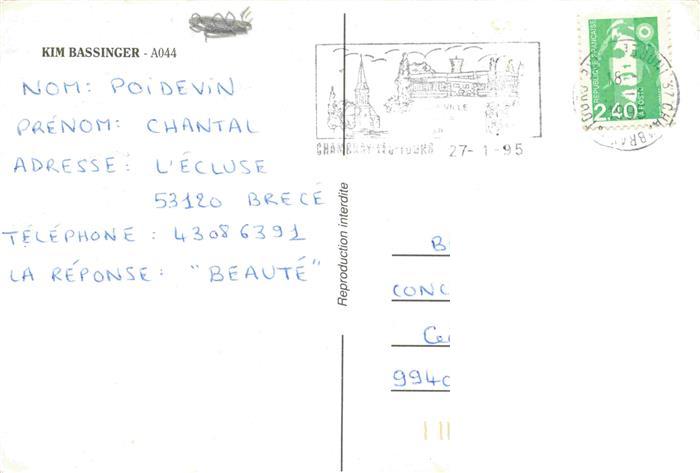 KIM BASSINGER - A044
NOM: POIDEVIN
PRÉNOM: CHANTAL
ADRESSE: L'ÉCLUSE
53120 BRECÉ
TÉLÉPHONE: 43086391
LA RÉPONSE: "BEAUTÉ"
Reproduction interdite
VILLE
CHAMBRAY-LES-TOURS 27-1-95
REPUBLIQUE FRANÇAISE
2,40
LA POSTE
B
CONC
Ce
9940